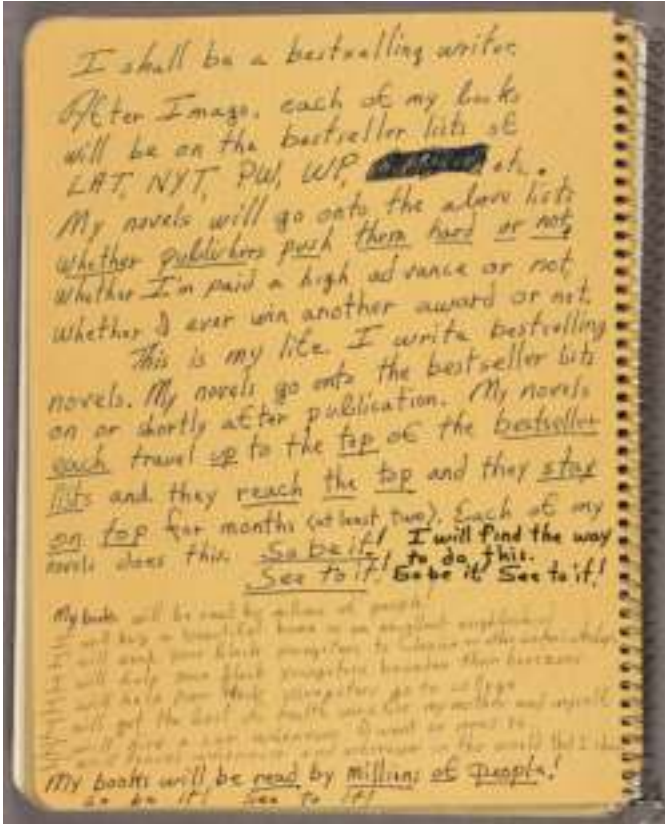 I shall be a bestselling writer.
After Imago, each of my books
will be on the bestseller lists of
LAT, NYT, PW, WP, etc.
My novels will go onto the above lists
whether publishers push them hard or not,
whether I'm paid a high advance or not,
whether I ever win another award or not.
This is my life. I write bestselling
novels. My novels go onto the bestseller lists
on or shortly after publication. My novels
each travel up to the top of the bestseller
lists and they reach the top and they stay
on top for months (at least two). Each of my
novels does this. So be it! I will find the way
to do this.
See to it! So be it! See to it!
My books will be read by millions of people.
will buy a beautiful home in an excellent neighborhood
will send poor black youngsters to Clarion or other writer's workshops
will help poor black youngsters broaden their horizons
will help poor black youngsters go to college
will get the best of health care for my mother and myself
My books will be read by millions of people!
So be it! See to it!